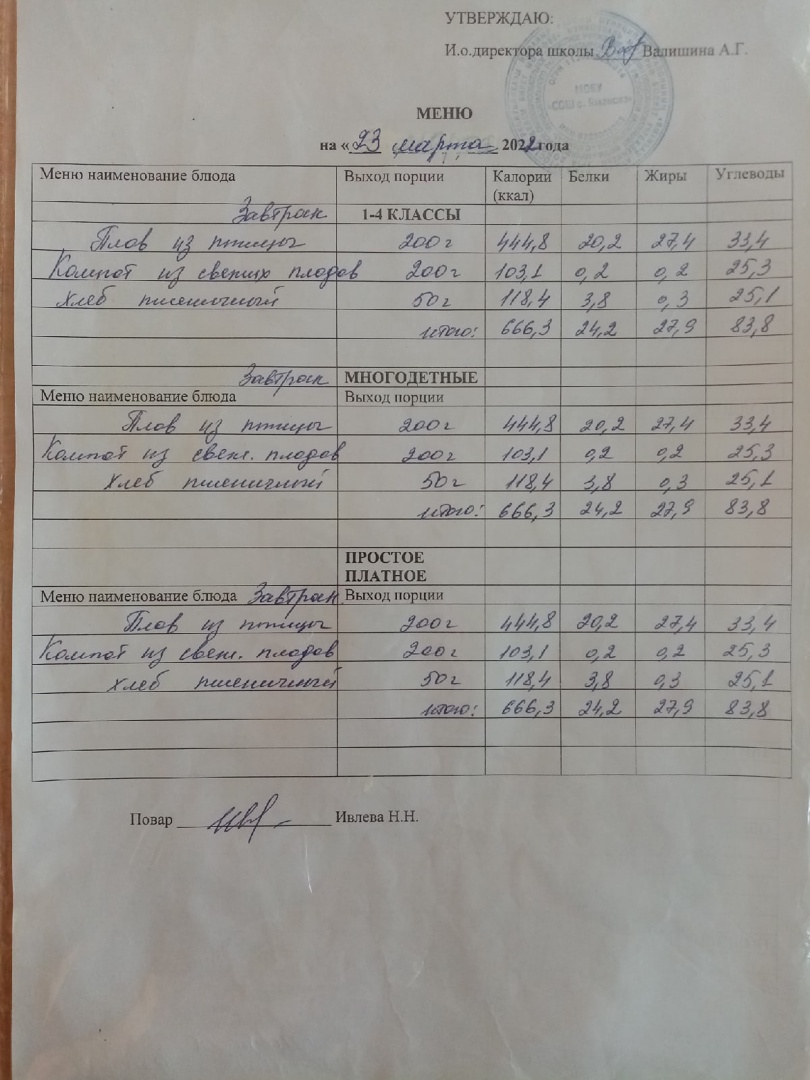 УТВЕРЖДАЮ:
И.о.директора школы Валишина А.Г.
МОБУ
МЕНЮ
на «23 марта 2022 года
Меню наименование блюда Выход порции Калории (ккал) Белки Жиры Углеводы
Завтрак 1-4 КЛАССЫ
Плов из птицы 200 г 444,8 20,2 27,4 33,4
Компот из свежих плодов 200 г 103,1 0,2 0,2 25,3
Хлеб пшеничный 50 г 118,4 3,8 0,3 25,1
итого: 666,3 24,2 27,9 83,8
Завтрак МНОГОДЕТНЫЕ
Меню наименование блюда Выход порции
Плов из птицы 200 г 444,8 20,2 27,4 33,4
Компот из свеж. плодов 200 г 103,1 0,2 0,2 25,3
Хлеб пшеничный 50 г 118,4 3,8 0,3 25,1
итого: 666,3 24,2 27,9 83,8
ПРОСТОЕ
ПЛАТНОЕ
Меню наименование блюда Завтрак Выход порции
Плов из птицы 200 г 444,8 20,2 27,4 33,4
Компот из свеж. плодов 200 г 103,1 0,2 0,2 25,3
Хлеб пшеничный 50 г 118,4 3,8 0,3 25,1
итого: 666,3 24,2 27,9 83,8
Повар Ивлева Н.Н.